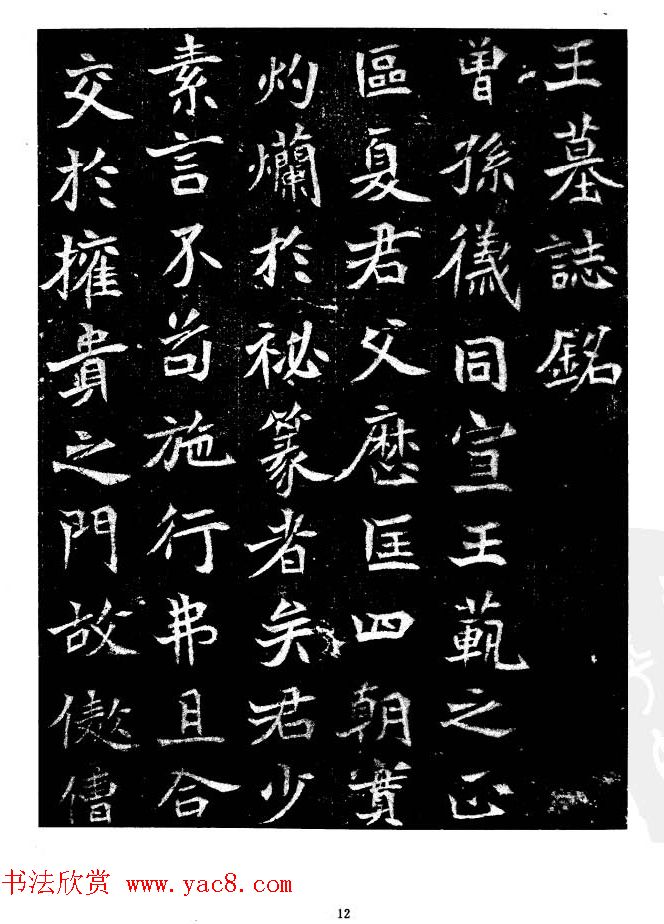 王墓誌銘
曾孫儀同宣王範之正
區夏君父歷匡四朝實
灼爛於祕篆者矣君少
素言不苟施行弗且合
交於擁貴之門故傲僧
书法欣赏 www.yac8.com
12